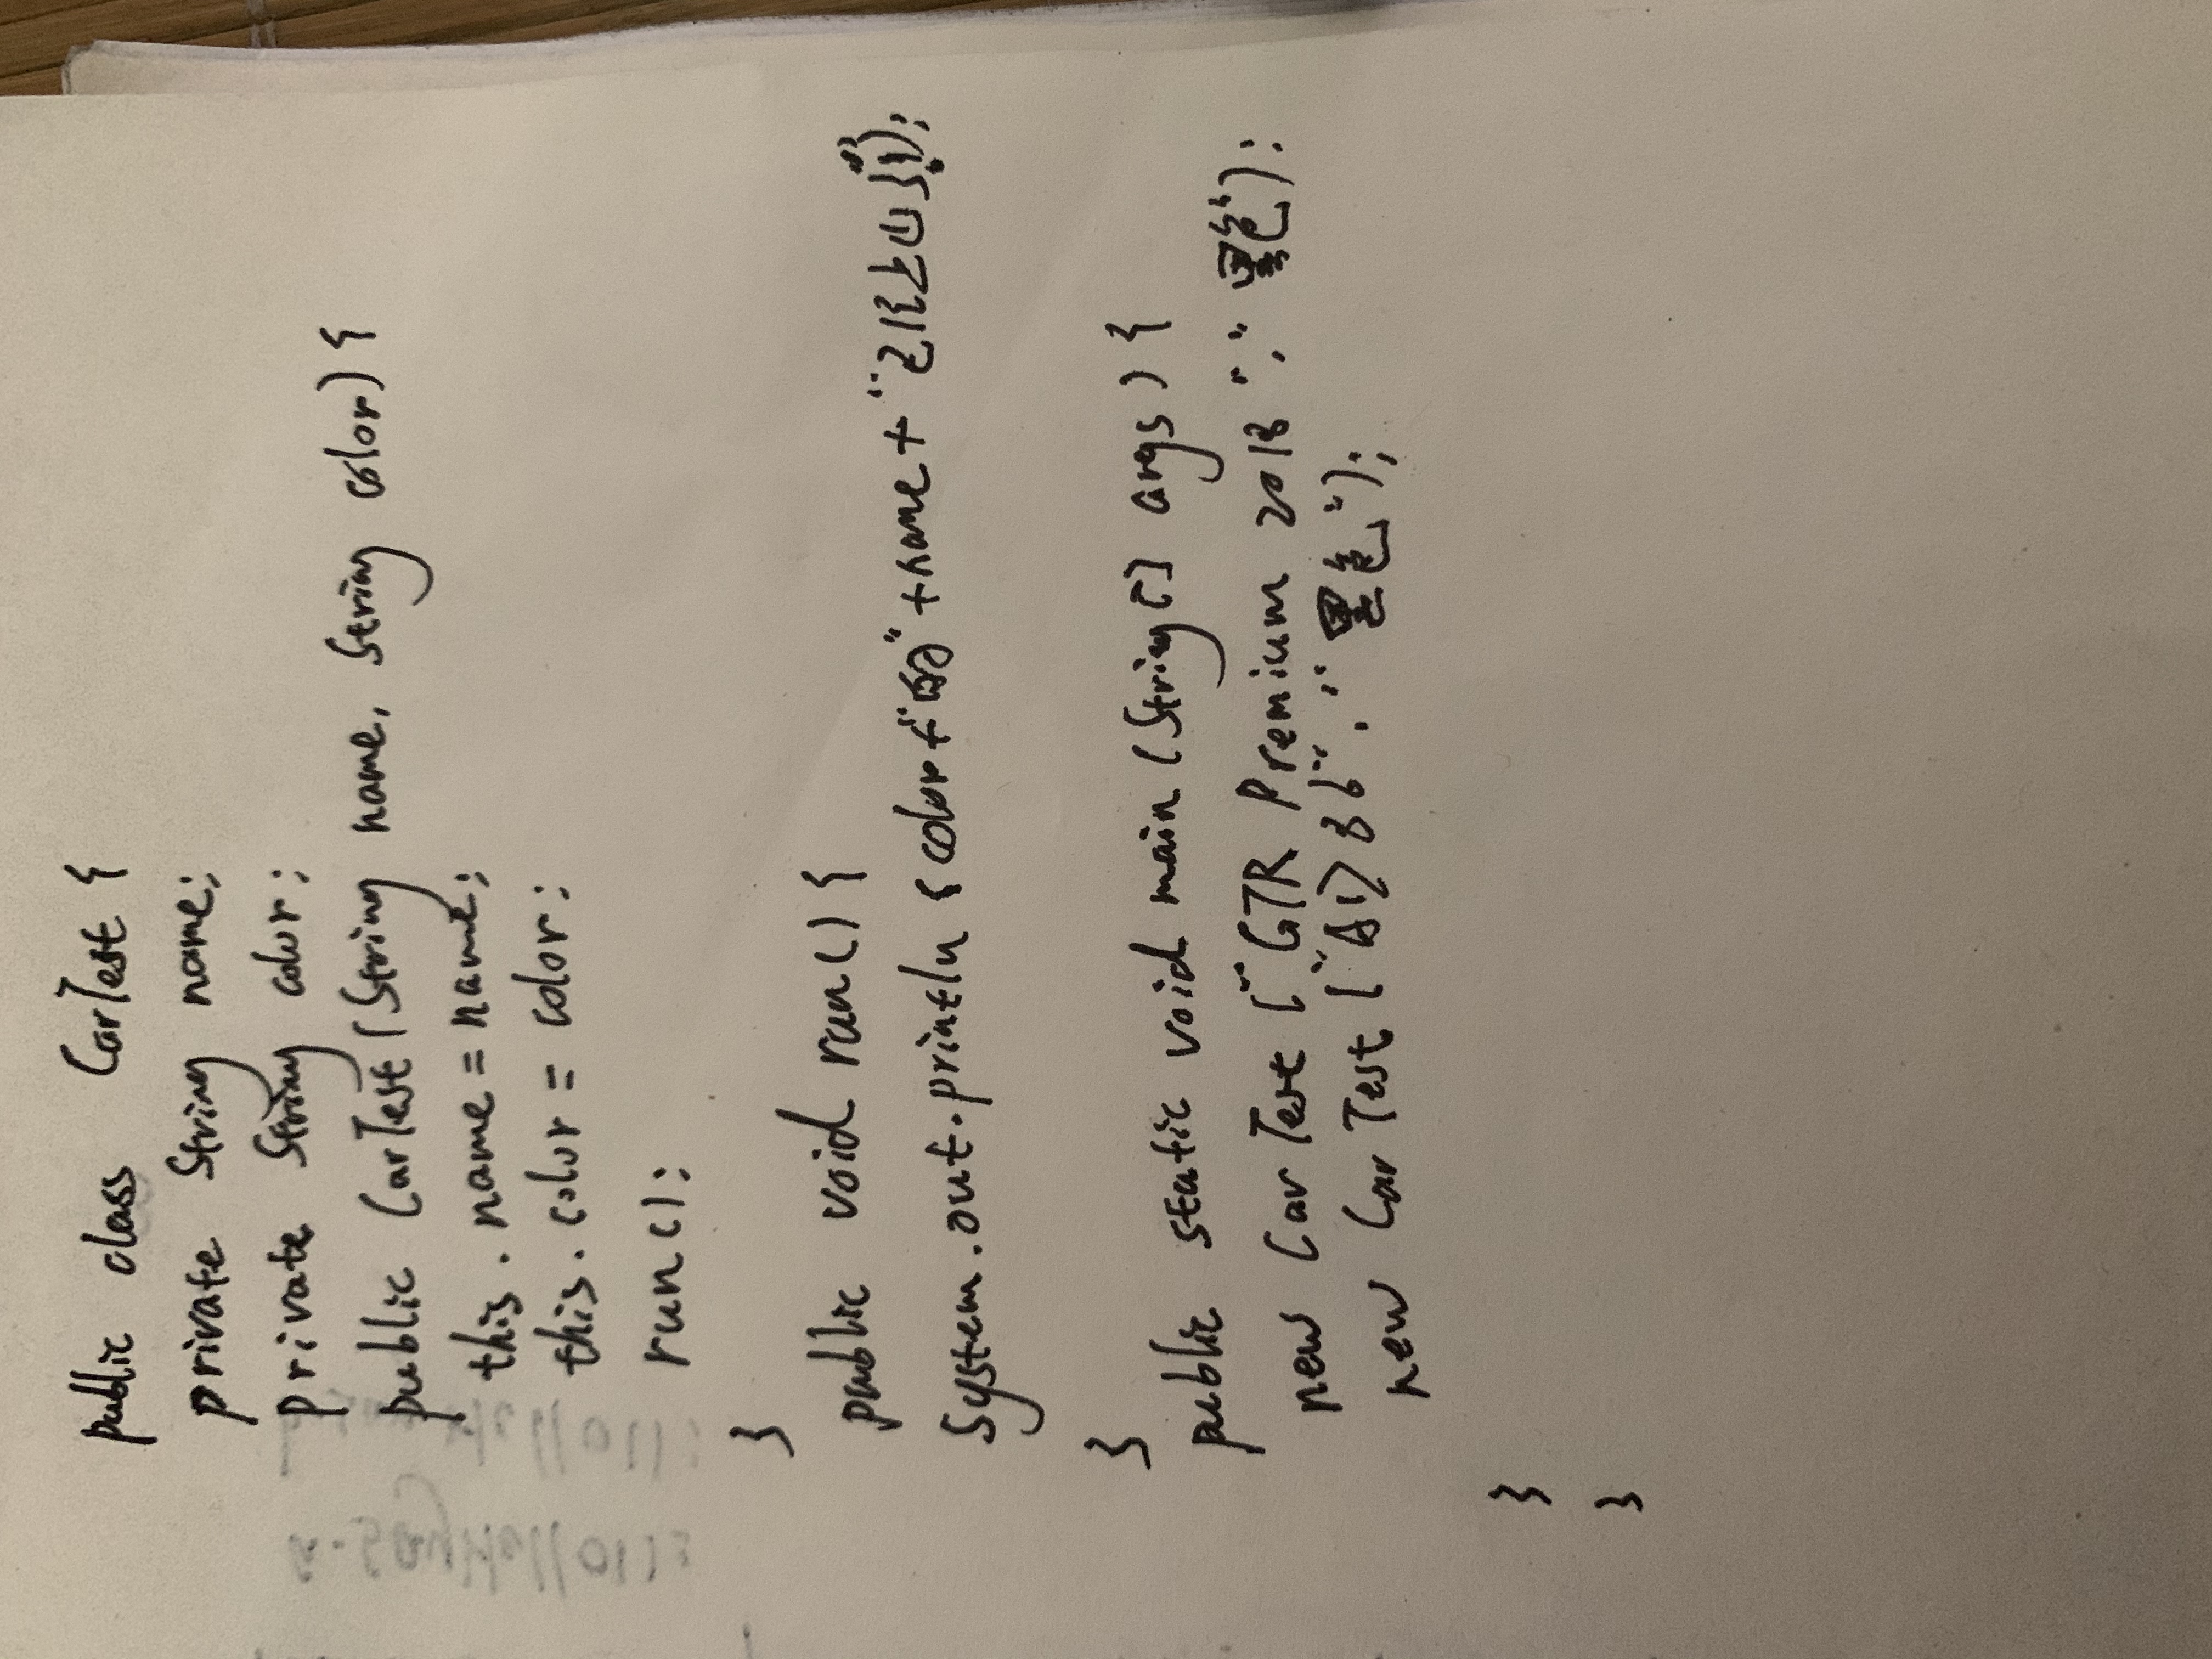 public class CarTest {
private String name;
private String color;
public CarTest(String name, String color) {
this.name = name;
this.color = color;
run();
}
public void run() {
System.out.println(color+"的"+name+"已经上山了");
}
public static void main (String[] args) {
new CarTest("GTR Premium 2018","黑色");
new CarTest("86","黑色");
}
}